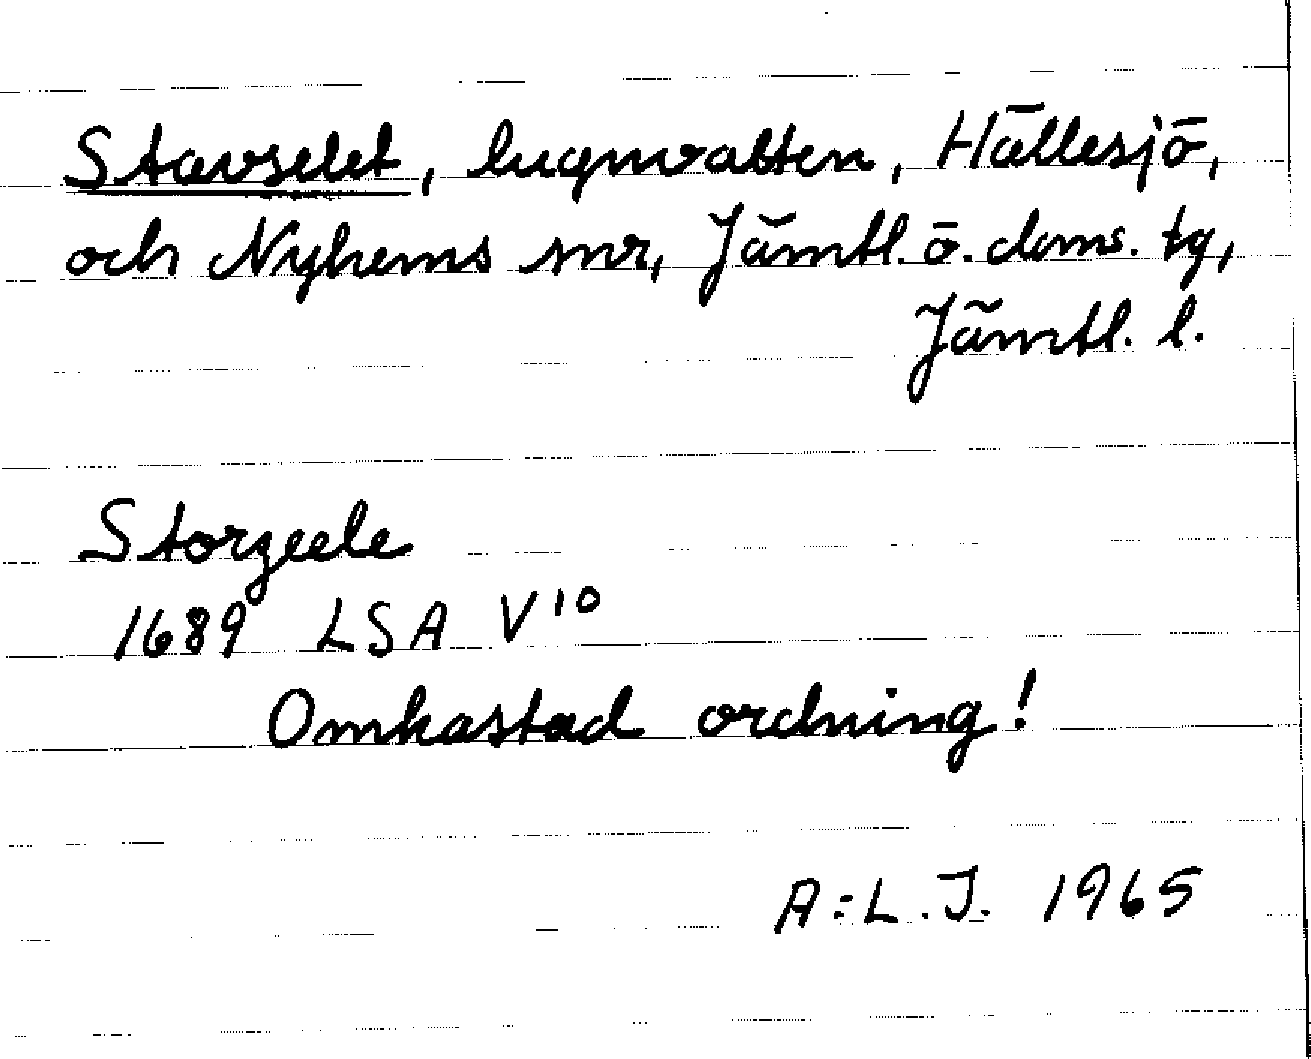 Stavselet, lugnvatten, Hällesjö,
och Nyhems snr, Jämtl. ö. doms. tg,
Jämtl. l.
Storzeele
1689 LSA V¹⁰
Omkastad ordning!
A:L.J. 1965